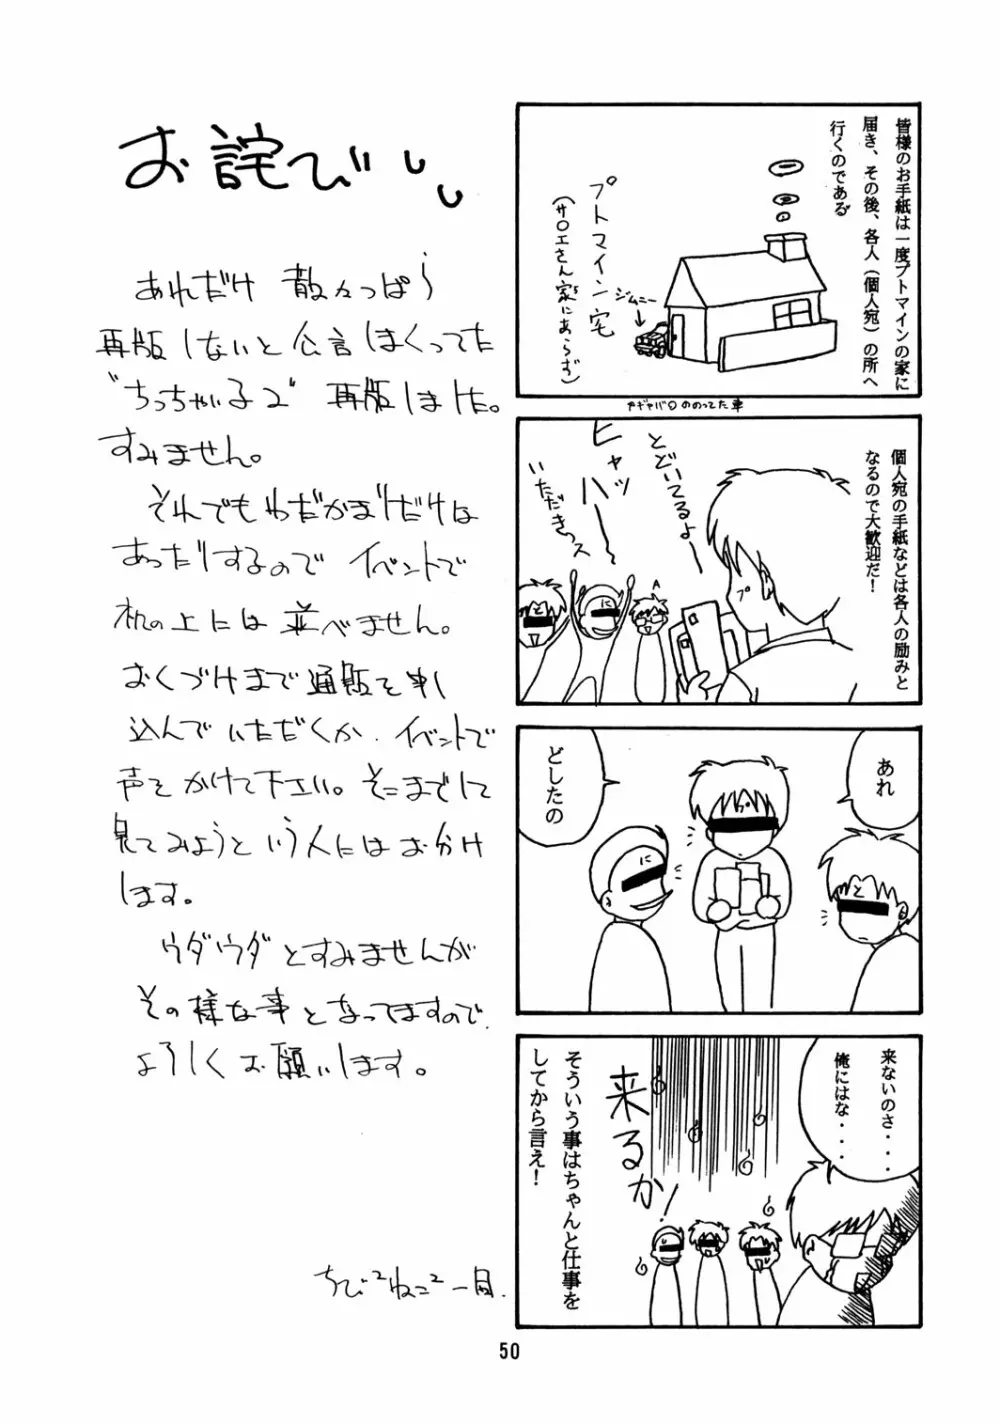 お詫び
あれだけ 散々っぱら
再版しないと公言しまくってた
“ちっちゃい子2” 再版しました。
すみません。
それでもわだかまりだけは
あったりするので イベントで
机の上には並べません。
おくづけまで通販を申し
込んでいただくか、イベントで
声をかけて下さい。そこまでして
見てみようという人にはお分け
します。
ウダウダとすみませんが
その様な事となってますので、
よろしくお願いします。
ちび²ねこ²一同.
皆様のお手紙は一度プトマインの家に
届き、その後、各人（個人宛）の所へ
行くのである
プトマイン宅
（サロエさん家にあらず）
ジムニー
ヤギャバロののってた車
個人宛の手紙などは各人の励みと
なるので大歓迎だ！
とどいてるよー
ヒャッ
ハー
いただきっス
プ
に
と
あれ
どしたの
プ
に
と
来ないのさ・・・・
俺にはな・・・・
来るか！
そういう事はちゃんと仕事を
してから言え！
50